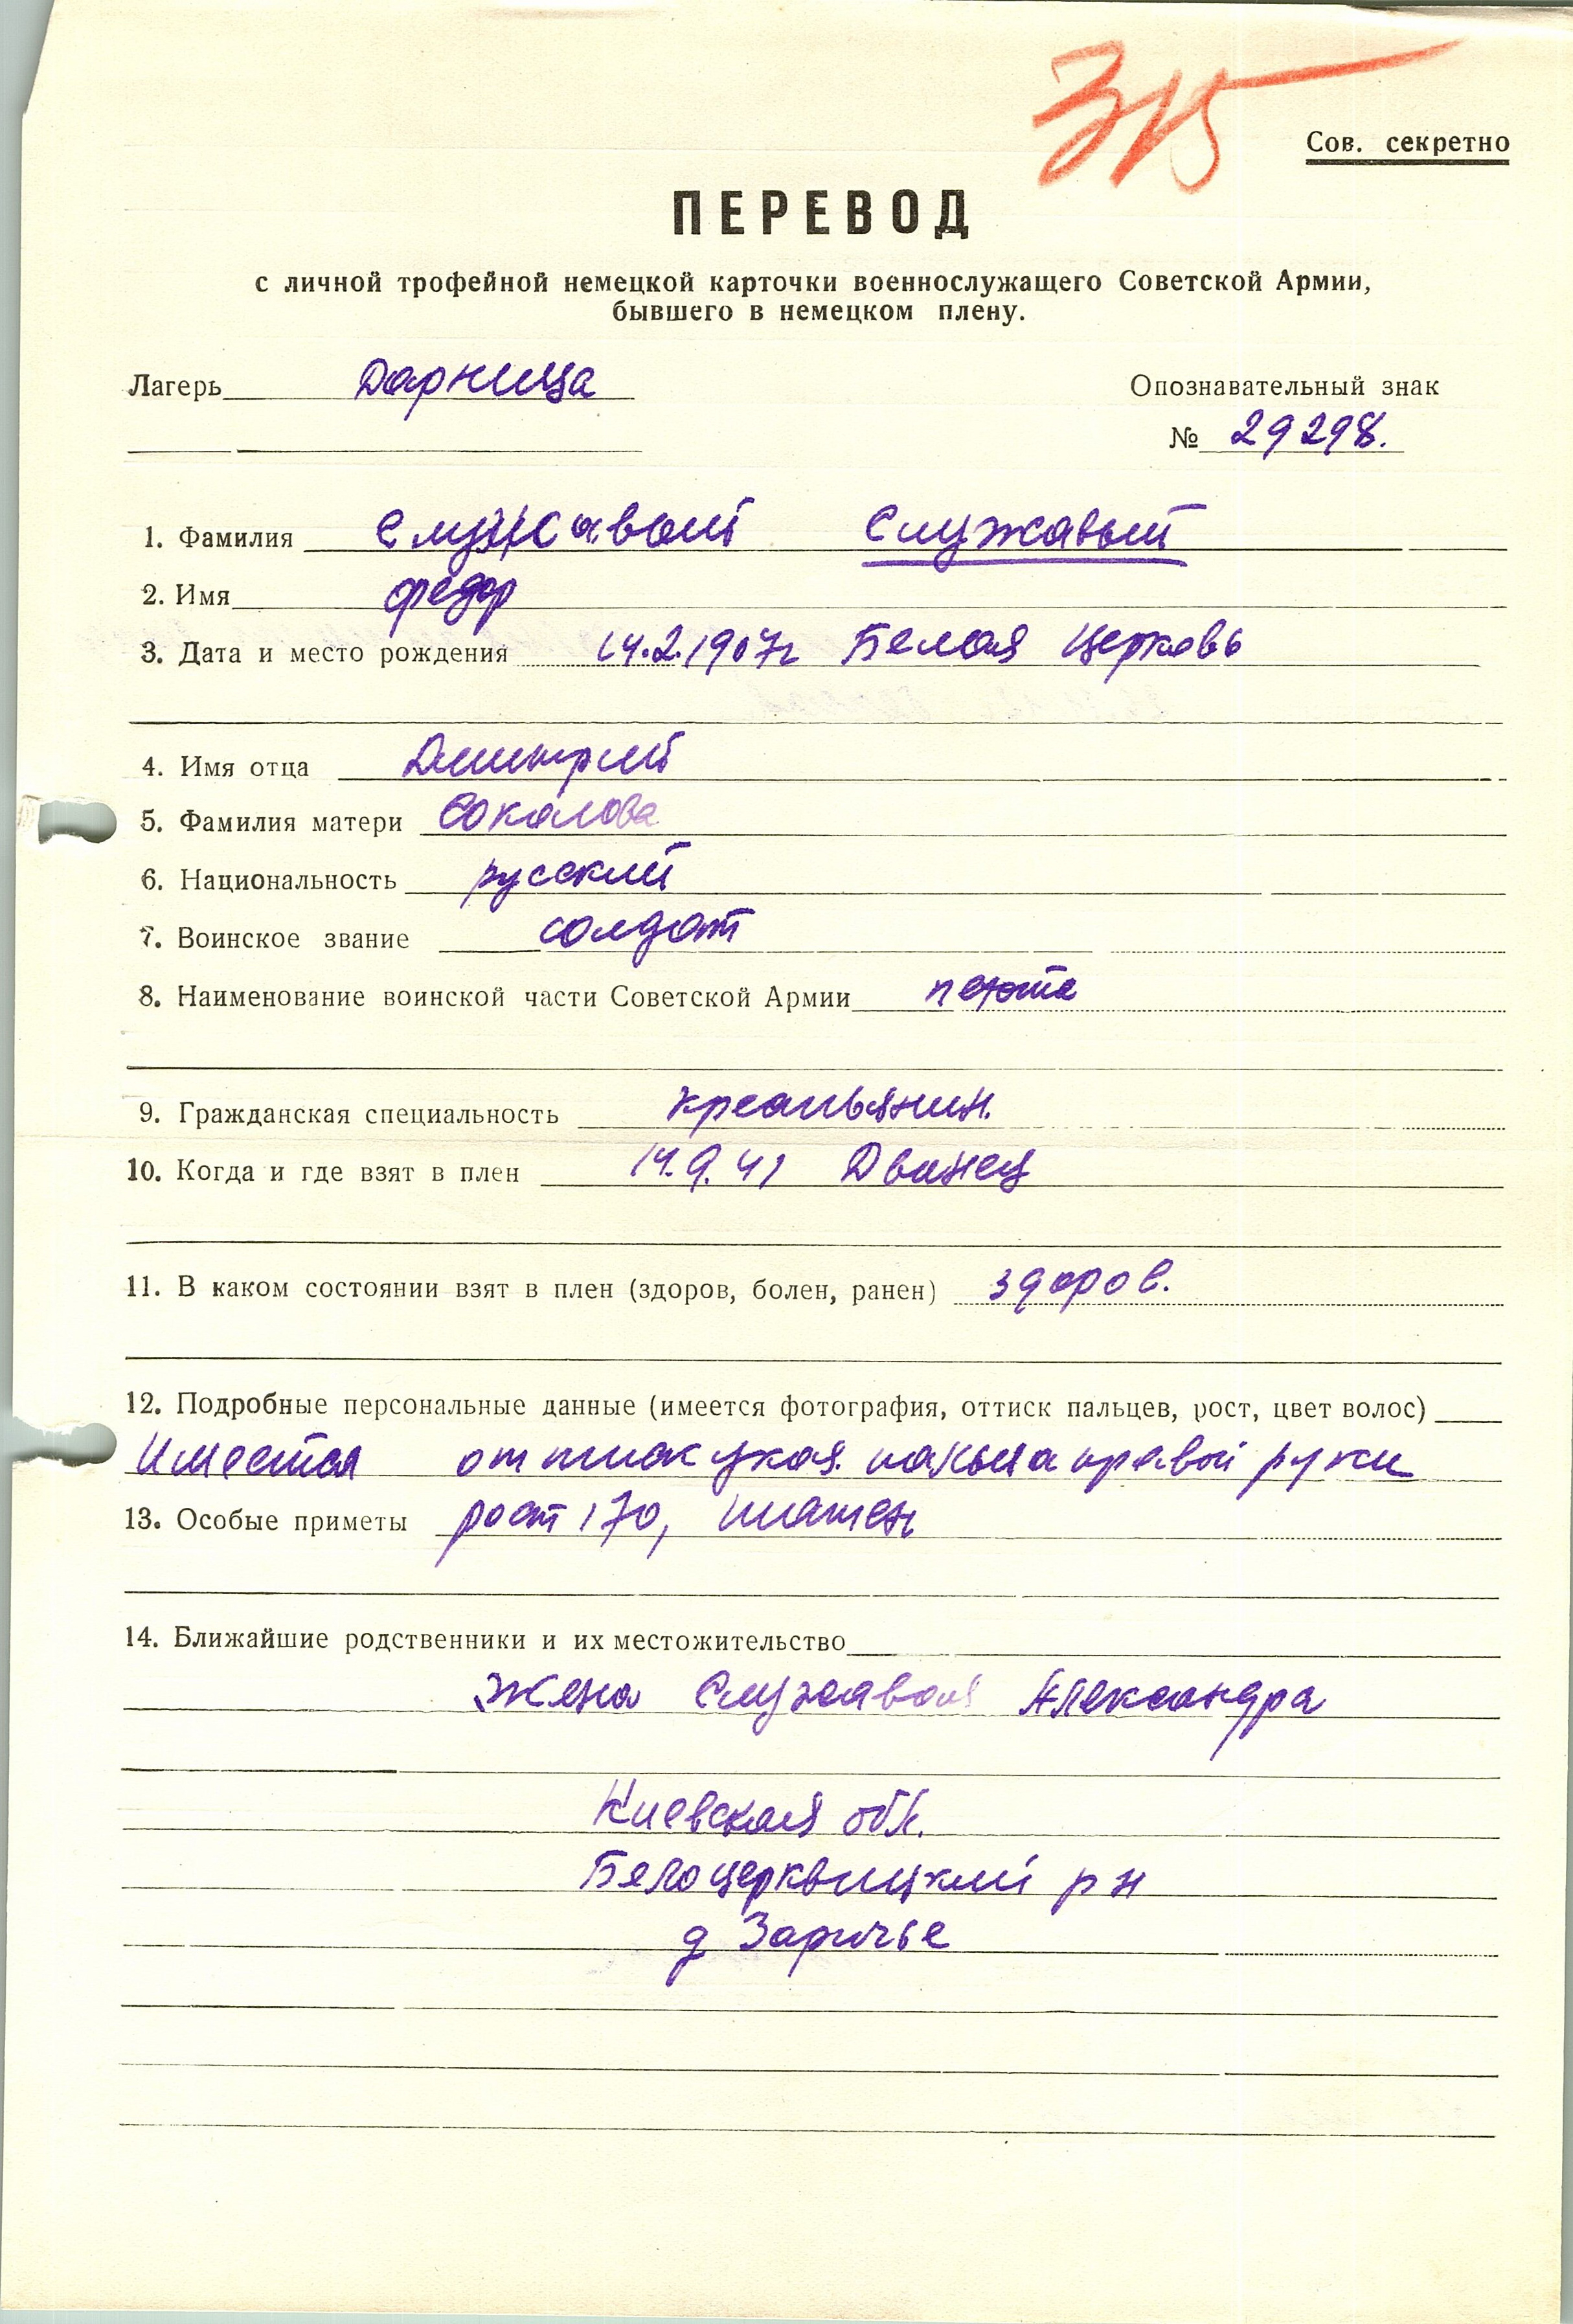 315
Сов. секретно
ПЕРЕВОД
с личной трофейной немецкой карточки военнослужащего Советской Армии,
бывшего в немецком плену.
Лагерь Дарница
Опознавательный знак
№ 29298.
1. Фамилия Служавый Служавый
2. Имя Федор
3. Дата и место рождения 14.2.1907г Белая Церковь
4. Имя отца Дмитрий
5. Фамилия матери Соколова
6. Национальность русский
7. Воинское звание солдат
8. Наименование воинской части Советской Армии пехота
9. Гражданская специальность крестьянин.
10. Когда и где взят в плен 14.9.41
11. В каком состоянии взят в плен (здоров, болен, ранен) здоров.
12. Подробные персональные данные (имеется фотография, оттиск пальцев, рост, цвет волос)
Имеется оттиск указ. пальца правой руки
13. Особые приметы рост 170, шатен
14. Ближайшие родственники и их местожительство
Жена Служавая Александра
Киевская обл.
Белоцерквицкий р н
д Заричье